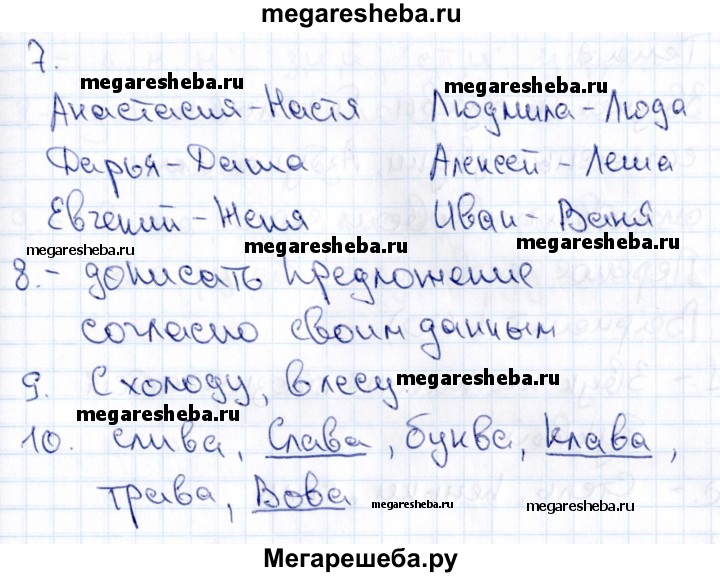 megaresheba.ru
7.
megaresheba.ru megaresheba.ru
Анастасия - Настя Людмила - Люда
Дарья - Даша Алексей - Леша
Евгений - Женя Иван - Ваня
megaresheba.ru megaresheba.ru megaresheba.ru
8. - дописать предложение
согласно своим данным
9. С холоду, в лесу. megaresheba.ru
megaresheba.ru
10. слива, Слава, буква, клава,
трава, Вова megaresheba.ru megaresheba.ru
Мегарешеба.ру